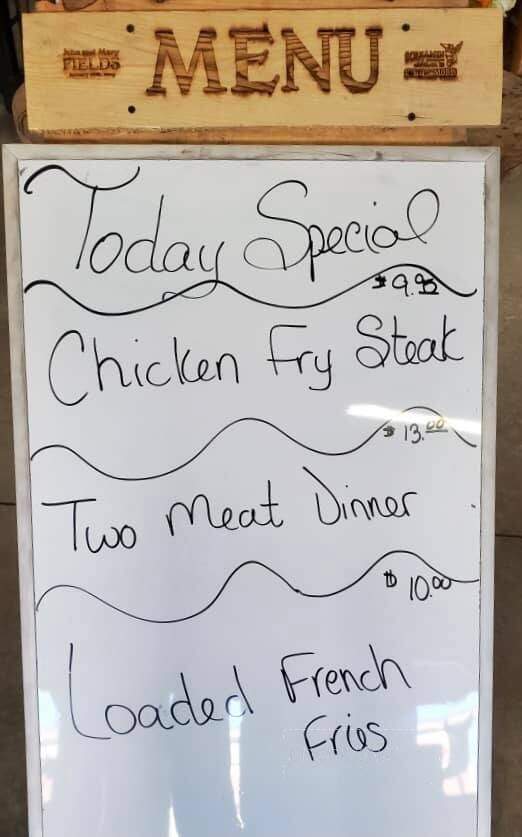 MENU
John and Mary
FIELDS
Today Special
$9.95
Chicken Fry Steak
$13.00
Two Meat Dinner
$10.00
Loaded French
Fries